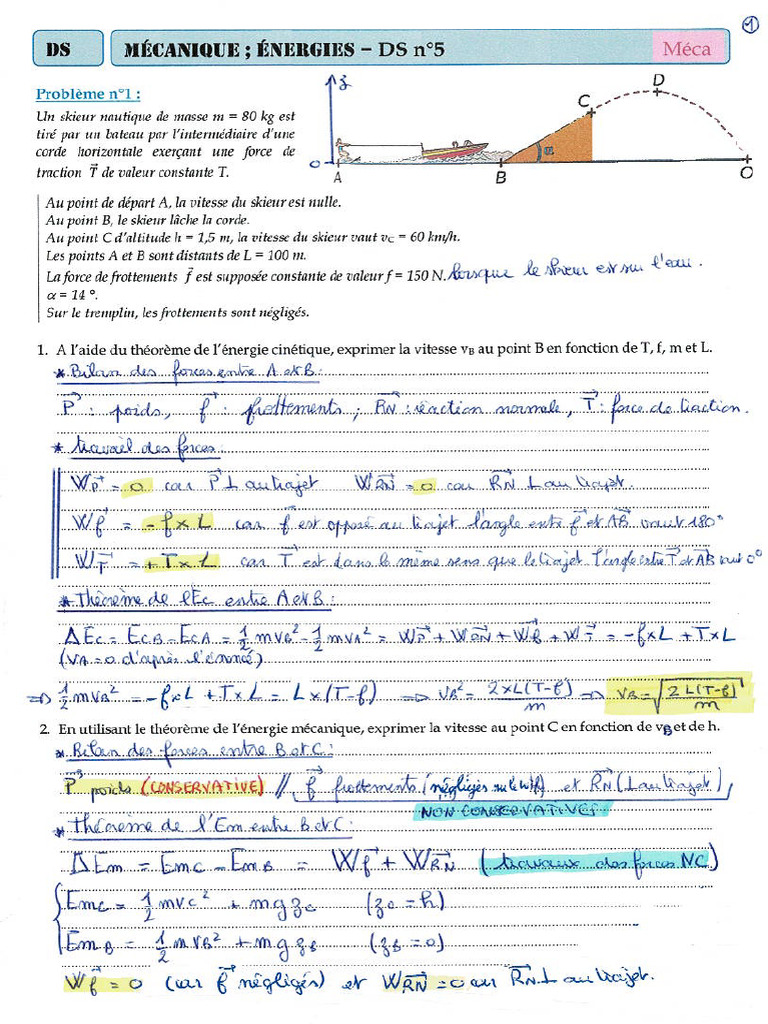 1
DS
MÉCANIQUE ; ÉNERGIES – DS n°5
Méca
Problème n°1 :
Un skieur nautique de masse m = 80 kg est
tiré par un bateau par l'intermédiaire d'une
corde horizontale exerçant une force de
traction T⃗ de valeur constante T.
z
D
C
0
α
A
B
O
Au point de départ A, la vitesse du skieur est nulle.
Au point B, le skieur lâche la corde.
Au point C d'altitude h = 1,5 m, la vitesse du skieur vaut vC = 60 km/h.
Les points A et B sont distants de L = 100 m.
La force de frottements f⃗ est supposée constante de valeur f = 150 N. lorsque le skieur est sur l'eau.
α = 14 °.
Sur le tremplin, les frottements sont négligés.
1. A l'aide du théorème de l'énergie cinétique, exprimer la vitesse vB au point B en fonction de T, f, m et L.
* Bilan des forces entre A et B :
P⃗ : poids, f⃗ : frottements ; R⃗N : réaction normale, T⃗ : force de traction.
* travail des forces :
WP⃗ = 0 car P⃗ ⊥ au trajet WR⃗N = 0 car R⃗N ⊥ au trajet.
Wf⃗ = -f×L car f⃗ est opposé au trajet l'angle entre f⃗ et AB⃗ vaut 180°
WT⃗ = +T×L car T⃗ est dans le même sens que le trajet l'angle entre T⃗ et AB⃗ vaut 0°
* Théorème de l'Ec entre A et B :
ΔEc = EcB - EcA = 1/2 mvB² - 1/2 mvA² = WP⃗ + WR⃗N + Wf⃗ + WT⃗ = -f×L + T×L
(vA = 0 d'après l'énoncé)
⇒ 1/2 mvB² = -f×L + T×L = L×(T-f) ⇒ vB² = 2×L(T-f)/m ⇒ vB = √(2L(T-f)/m)
2. En utilisant le théorème de l'énergie mécanique, exprimer la vitesse au point C en fonction de vB et de h.
* Bilan des forces entre B et C :
P⃗ poids (CONSERVATIVE) // f⃗ frottements (négligés sur le) et R⃗N (⊥ au trajet)
NON CONSERVATIVES
* théorème de l'Em entre B et C :
ΔEm = EmC - EmB = Wf⃗ + WR⃗N (travaux des forces NC)
EmC = 1/2 mvC² + mgzC (zC = h)
EmB = 1/2 mvB² + mgzB (zB = 0)
Wf⃗ = 0 (car f⃗ négligés) et WR⃗N = 0 car R⃗N ⊥ au trajet.